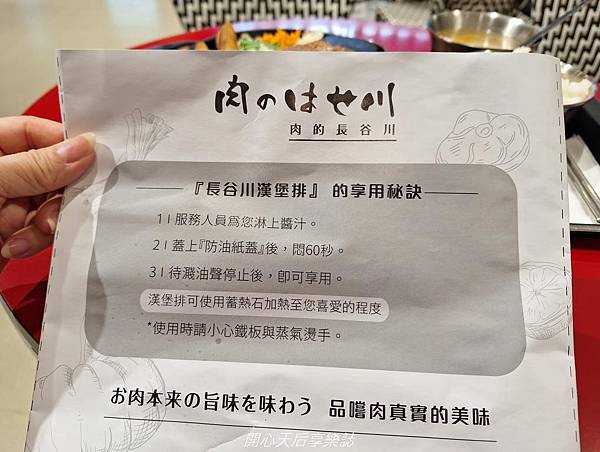 肉のはせ川
肉的長谷川
『長谷川漢堡排』 的享用秘訣
1 | 服務人員為您淋上醬汁。
2 | 蓋上『防油紙蓋』後，悶60秒。
3 | 待濺油聲停止後，即可享用。
漢堡排可使用蓄熱石加熱至您喜愛的程度
*使用時請小心鐵板與蒸氣燙手。
お肉本来の旨味を味わう 品嚐肉真實的美味
開心天后享樂誌